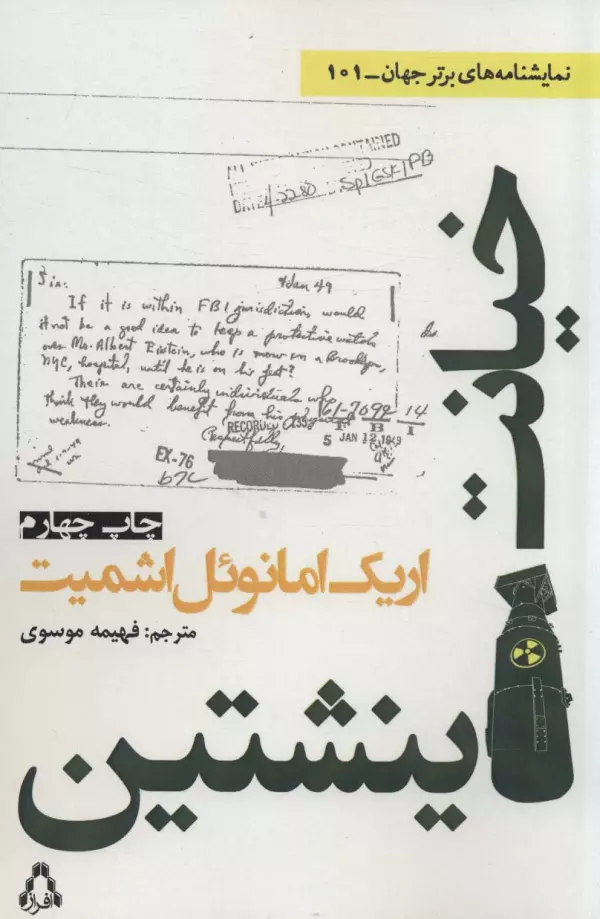 نمایشنامه‌های برتر جهان ـ ۱۰۱
خیانت
اینشتین
CONTAINED
DATE 4-22-80 Sp1GSK/PB
Sir:
4 Jan 49
If it is within FBI jurisdiction, would
it not be a good idea to keep a protective watch
over Mr. Albert Einstein, who is now in a Brooklyn,
NYC, hospital, until he is on his feet?
There are certainly individuals who
think they would benefit from his
weakness.
61-7099-14
F B I
RECORDED
5 JAN 12 1949
Respectfully,
EX-76
b7C
چاپ چهارم
اریک امانوئل اشمیت
مترجم: فهیمه موسوی
افراز